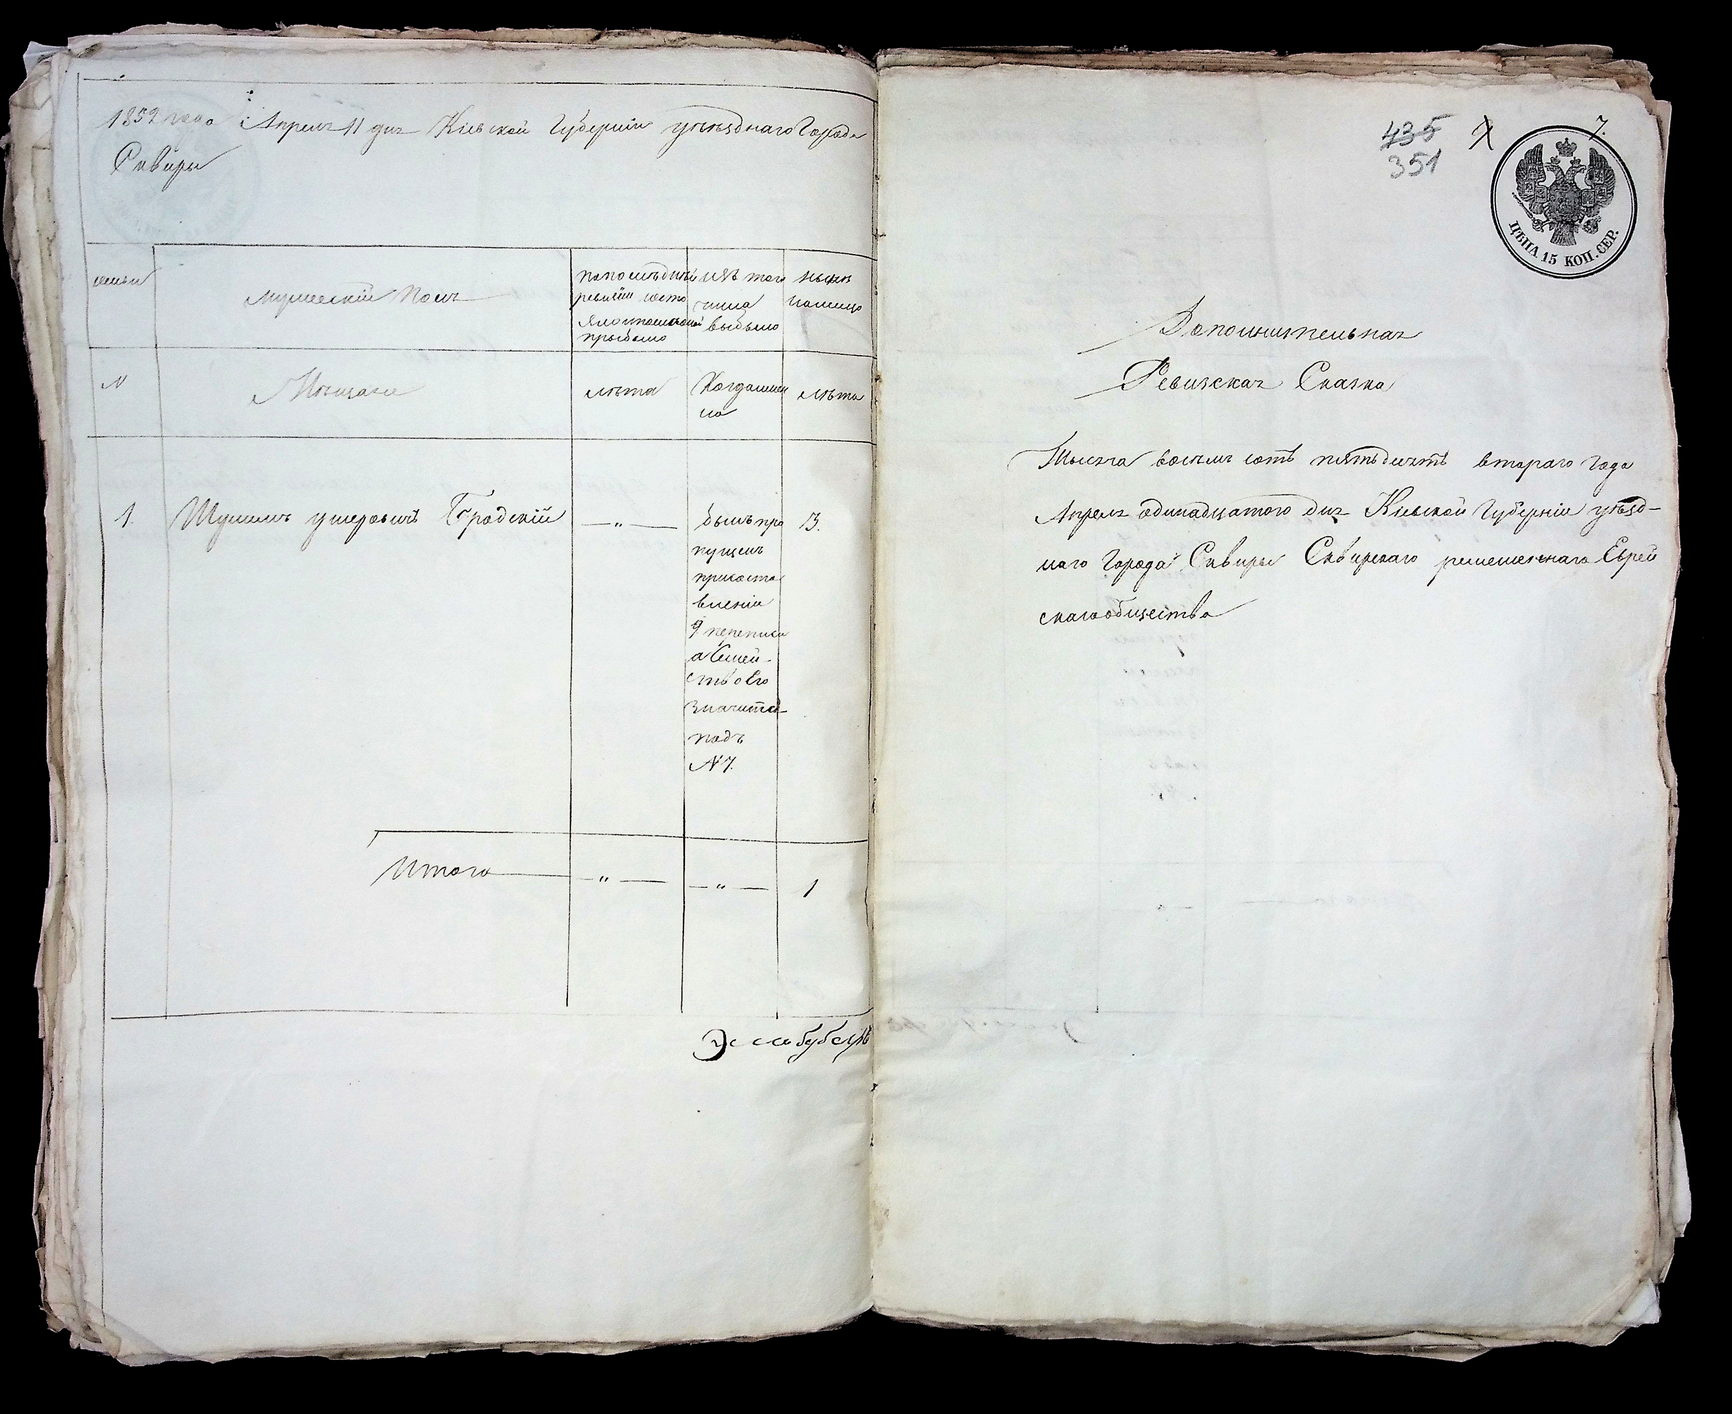 1852 года Апреля 11 дня Кіевской Губерніи уѣзднаго Города
Сквиры
семьи
мужескій Полъ
по последней
ревизіи состо
яло и после того
прибыло
изъ того
числа
выбыло
ныне
на лицо
№
Мѣщане
лѣта
Когда именно
лѣта
1.
Шулимъ Ушеровичъ Бродскій
— „ —
былъ про
пущенъ
при соста
вленіи
9 переписи
а Семей-
ство его
значится
подъ
№ 7.
13.
Итого
— „ —
— „ —
1
435
351
7.
ЦѢНА 15 КОП. СЕР.
Дополнительная
Ревизская Сказка
Тысяча восемь сотъ пятьдесятъ втораго Года
Апреля одинадцатого дня Кіевской Губерніи уѣзд-
наго Города Сквиры Сквирскаго ремесленнаго Еврей
скаго общества